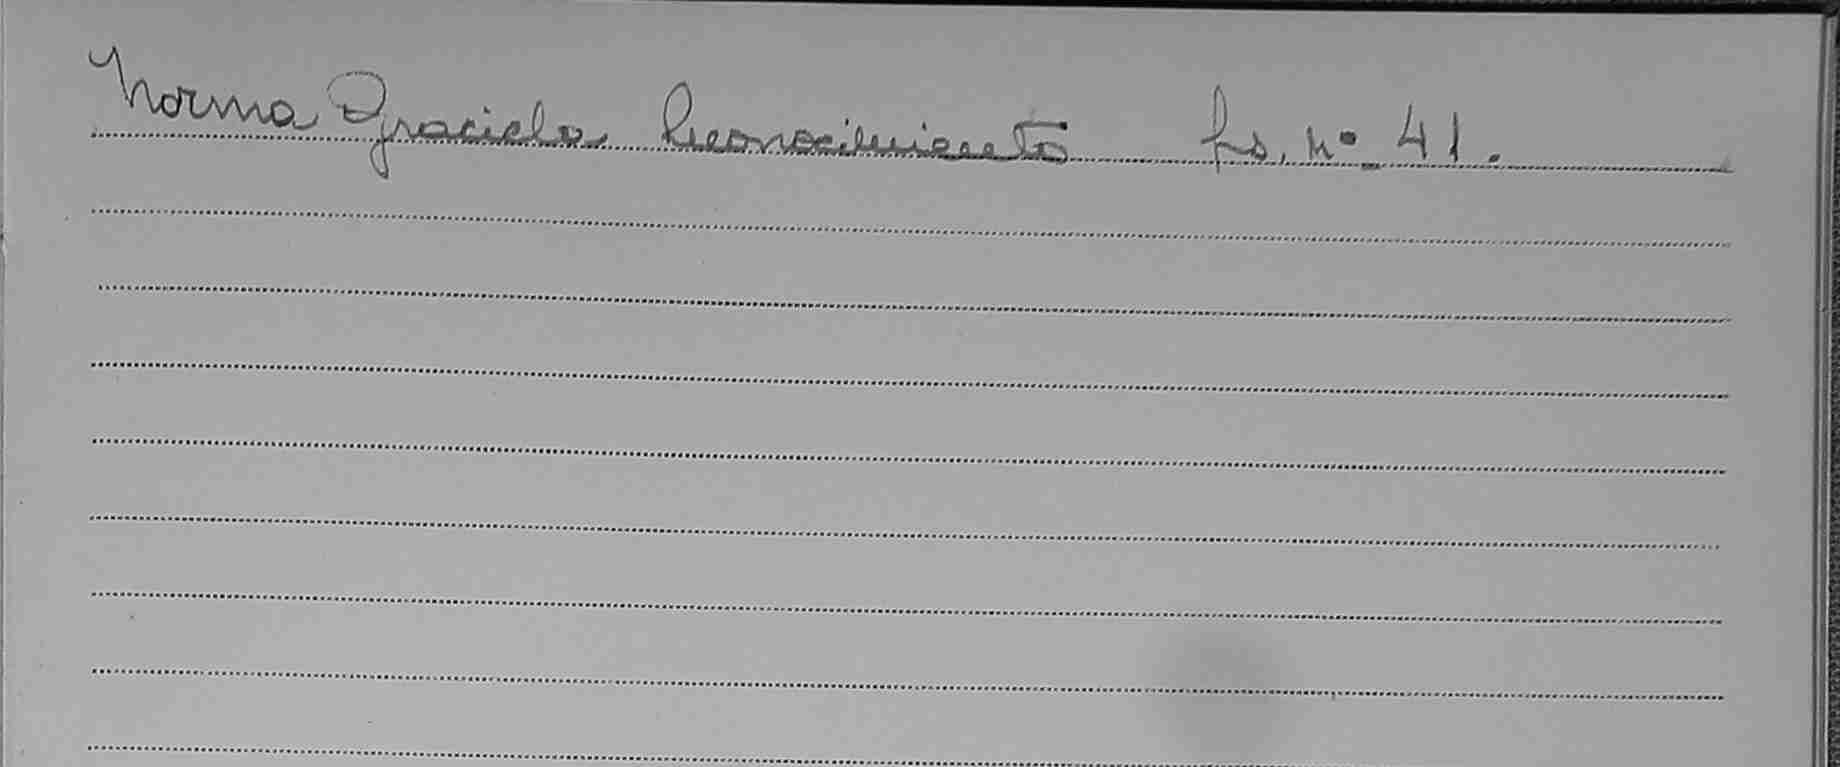 Norma Graciela Reconocimiento fs. nº 41.